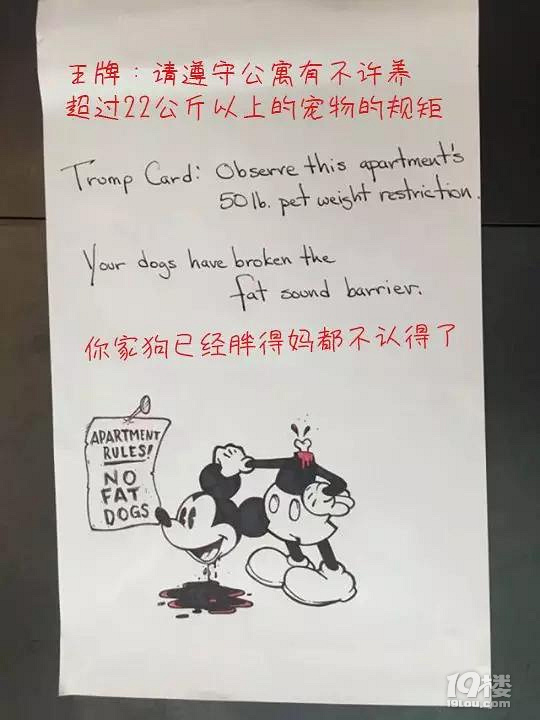 王牌：请遵守公寓有不许养
超过22公斤以上的宠物的规矩
Trump Card: Observe this apartment's
50 lb. pet weight restriction.
Your dogs have broken the
fat sound barrier.
你家狗已经胖得妈都不认得了
APARTMENT
RULES!
NO
FAT
DOGS
19楼
19lou.com